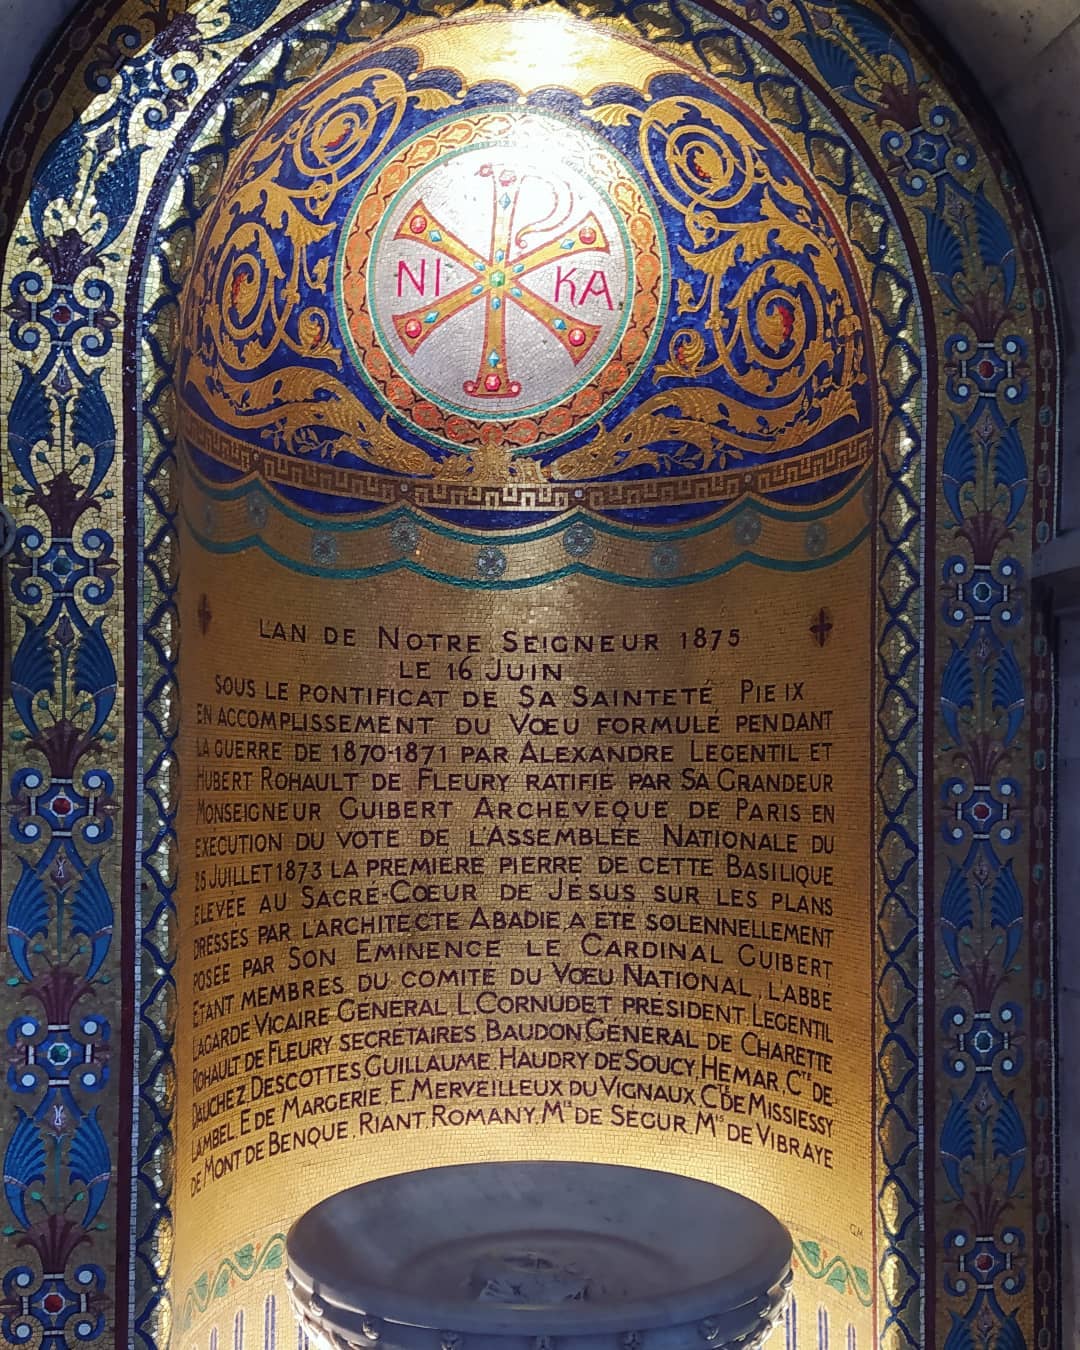 NI KA
LAN DE NOTRE SEIGNEUR 1875
LE 16 JUIN
SOUS LE PONTIFICAT DE SA SAINTETÉ PIE IX
EN ACCOMPLISSEMENT DU VŒU FORMULÉ PENDANT
LA GUERRE DE 1870-1871 PAR ALEXANDRE LEGENTIL ET
HUBERT ROHAULT DE FLEURY RATIFIÉ PAR SA GRANDEUR
MONSEIGNEUR GUIBERT ARCHEVÊQUE DE PARIS EN
EXÉCUTION DU VOTE DE L'ASSEMBLÉE NATIONALE DU
JUILLET 1873 LA PREMIÈRE PIERRE DE CETTE BASILIQUE
ÉLEVÉE AU SACRÉ-CŒUR DE JÉSUS SUR LES PLANS
DRESSÉS PAR L'ARCHITECTE ABADIE A ÉTÉ SOLENNELLEMENT
POSÉE PAR SON EMINENCE LE CARDINAL GUIBERT
ÉTANT MEMBRES DU COMITÉ DU VŒU NATIONAL, L'ABBÉ
LAGARDE VICAIRE GÉNÉRAL L. CORNUDET PRÉSIDENT LEGENTIL
ROHAULT DE FLEURY SECRÉTAIRES BAUDON GÉNÉRAL DE CHARETTE
DAUCHEZ DESCOTTES GUILLAUME HAUDRY DE SOUCY HEMAR CTE DE
LAMBEL E. DE MARGERIE E. MERVEILLEUX DU VIGNAUX CTE DE MISSIESSY
DE MONT DE BENQUE RIANT ROMANY MIS DE SÉGUR MIS DE VIBRAYE